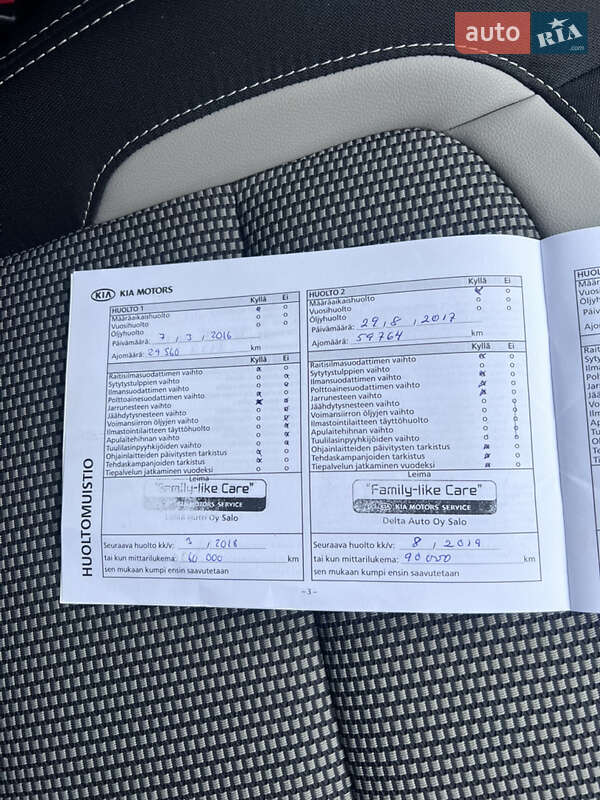 auto RIA .com
HUOLTOMUISTIO
KIA KIA MOTORS
HUOLTO 1 Kyllä Ei
Määräaikaishuolto
Vuosihuolto
Öljyhuolto
Päivämäärä: 7 , 3 , 2016
Ajomäärä: 29 560 km
Raitisilmasuodattimen vaihto
Sytytystulppien vaihto
Ilmansuodattimen vaihto
Polttoainesuodattimen vaihto
Jarrunesteen vaihto
Jäähdytysnesteen vaihto
Voimansiirron öljyjen vaihto
Ilmastointilaitteen täyttöhuolto
Apulaitehihnan vaihto
Tuulilasinpyyhkijöiden vaihto
Ohjainlaitteiden päivitysten tarkistus
Tehdaskampanjoiden tarkistus
Tiepalvelun jatkaminen vuodeksi
Leima
"Family-like Care"
KIA MOTORS SERVICE
Delta Auto Oy Salo
Seuraava huolto kk/v: 3 , 2018
tai kun mittarilukema: 60 000 km
sen mukaan kumpi ensin saavutetaan
HUOLTO 2 Kyllä Ei
Määräaikaishuolto
Vuosihuolto
Öljyhuolto
Päivämäärä: 29 , 8 , 2017
Ajomäärä: 59764 km
Raitisilmasuodattimen vaihto
Sytytystulppien vaihto
Ilmansuodattimen vaihto
Polttoainesuodattimen vaihto
Jarrunesteen vaihto
Jäähdytysnesteen vaihto
Voimansiirron öljyjen vaihto
Ilmastointilaitteen täyttöhuolto
Apulaitehihnan vaihto
Tuulilasinpyyhkijöiden vaihto
Ohjainlaitteiden päivitysten tarkistus
Tehdaskampanjoiden tarkistus
Tiepalvelun jatkaminen vuodeksi
Leima
"Family-like Care"
KIA MOTORS SERVICE
Delta Auto Oy Salo
Seuraava huolto kk/v: 8 , 2019
tai kun mittarilukema: 90 000 km
sen mukaan kumpi ensin saavutetaan
-3-